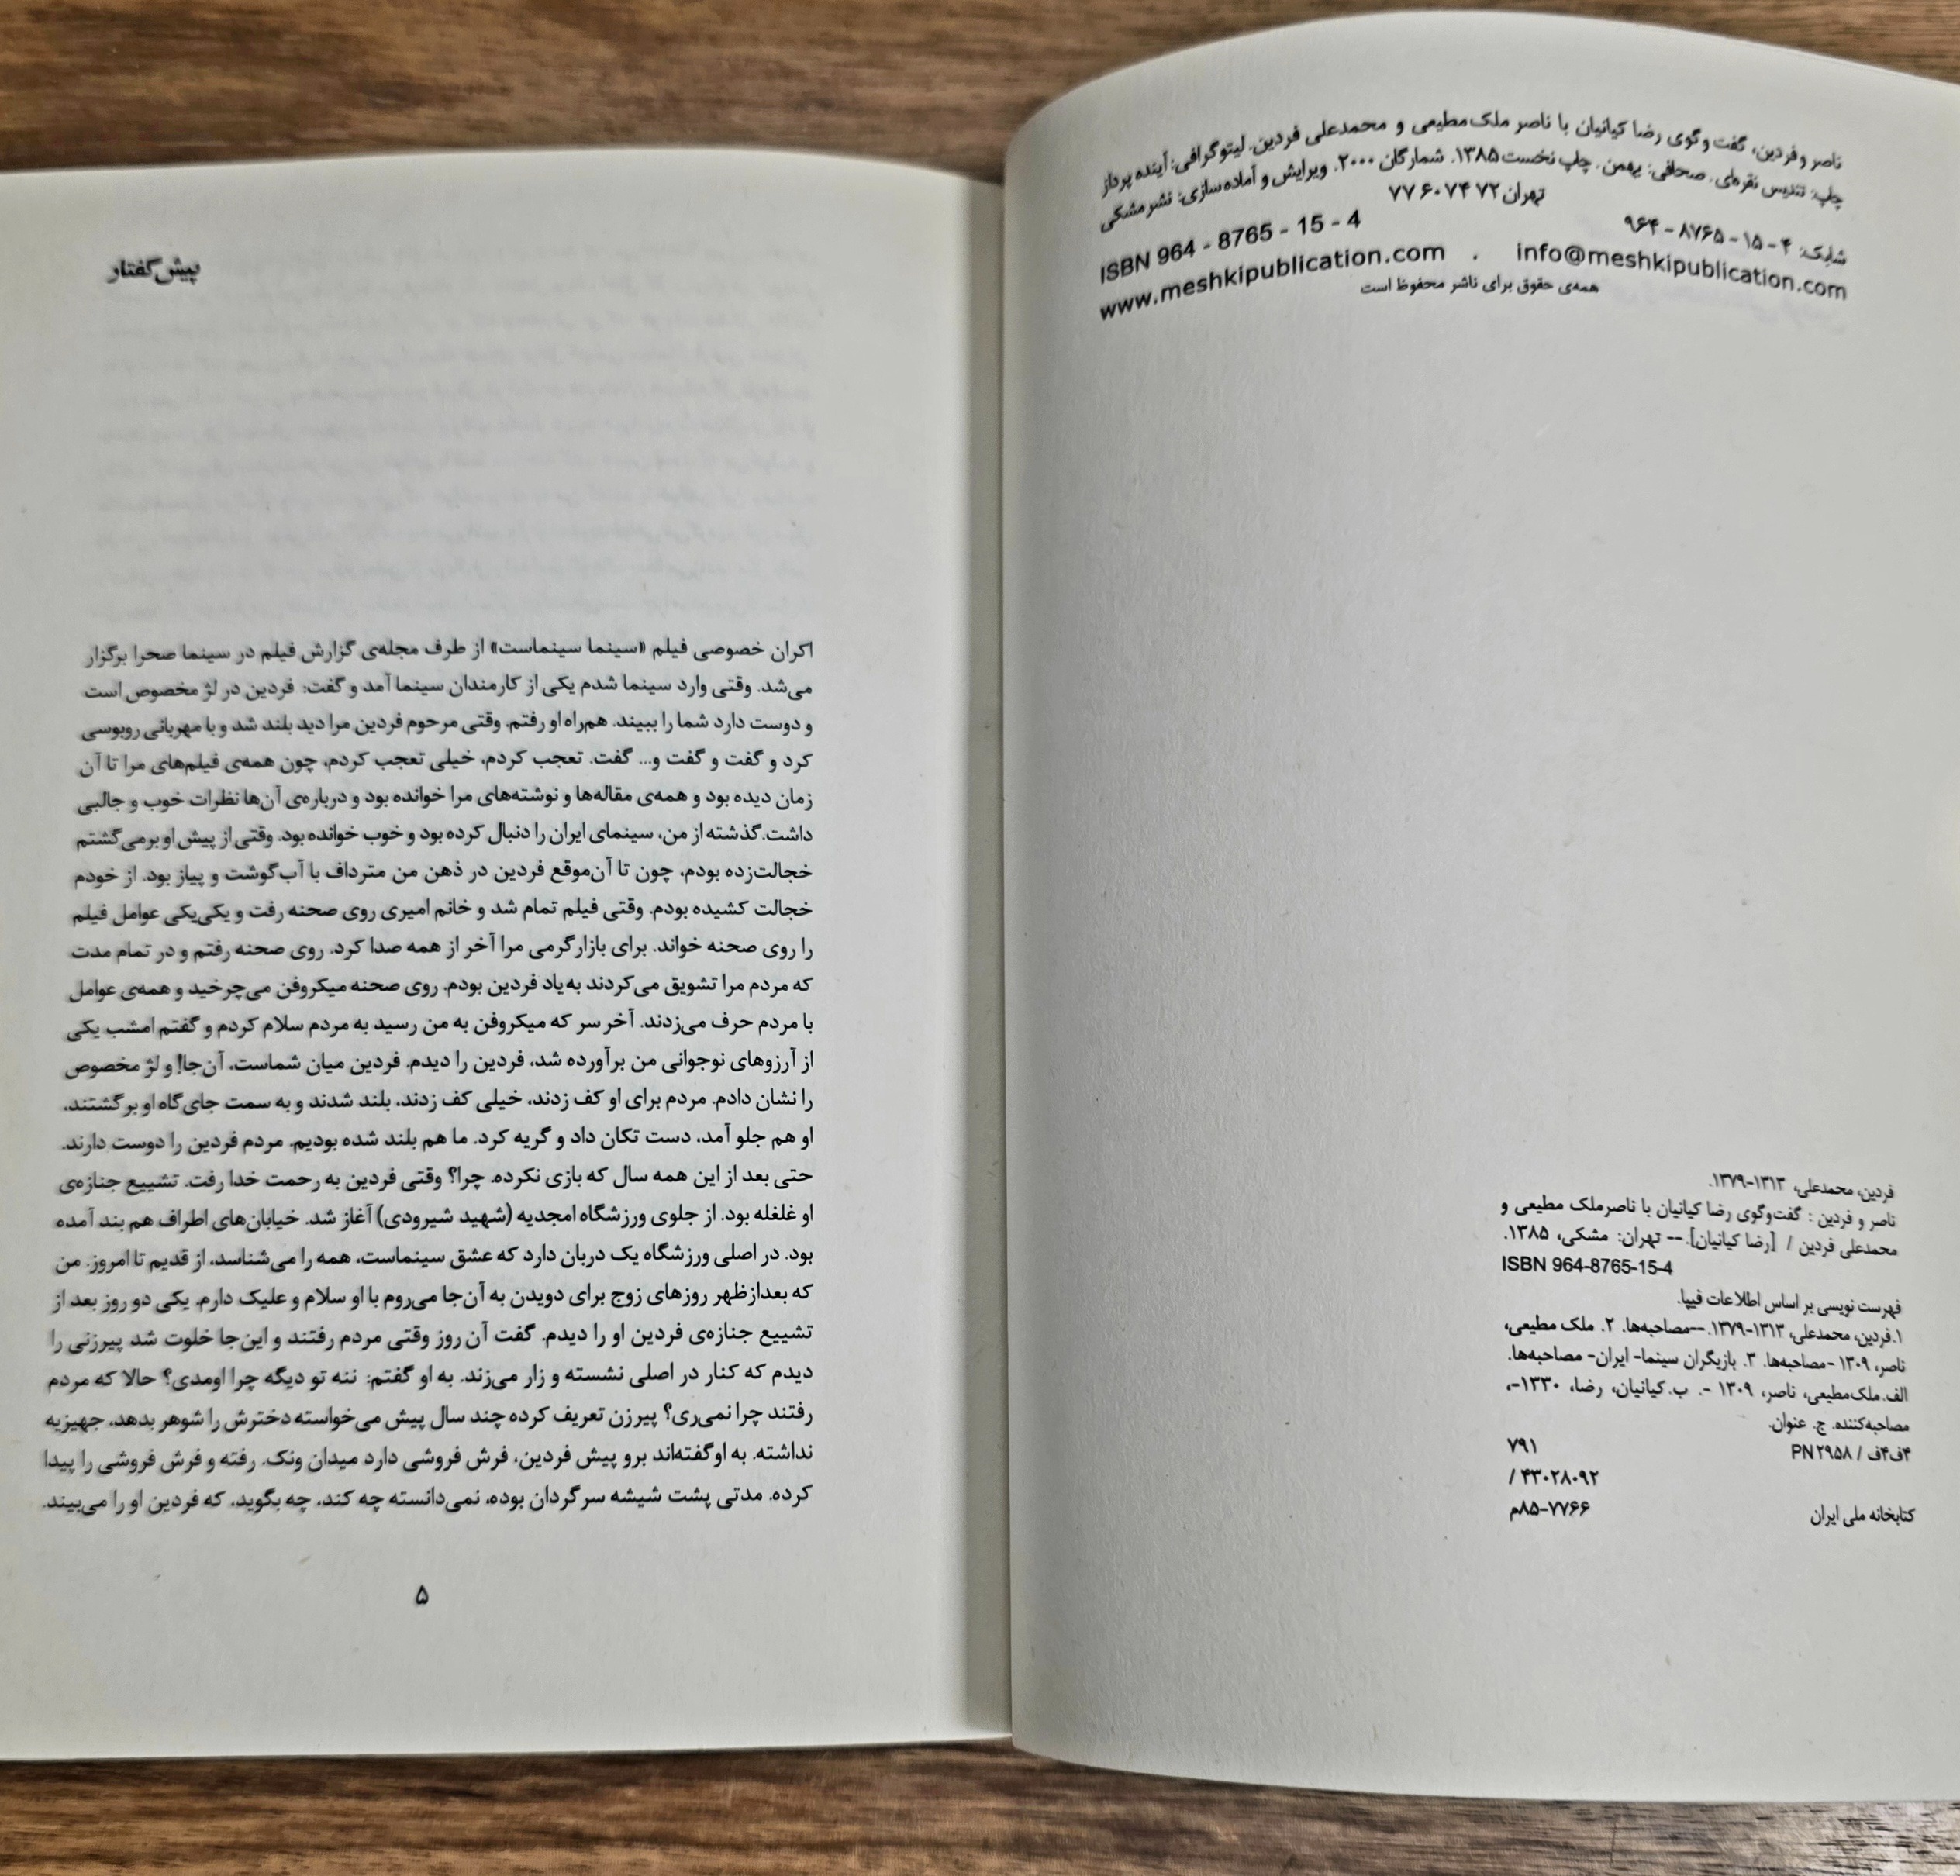 ناصر و فردین، گفت و گوی رضا کیانیان با ناصر ملک‌مطیعی و محمدعلی فردین. لیتوگرافی: آینده پرداز
چاپ: تندیس نقره‌ای. صحافی: بهمن. چاپ نخست ۱۳۸۵. شمارگان ۲۰۰۰. ویرایش و آماده‌سازی: نشر مشکی
تهران ۷۷ ۶۰ ۷۴ ۷۲
شابک: ۴ - ۱۵ - ۸۷۶۵ - ۹۶۴ ISBN 964 - 8765 - 15 - 4
www.meshkipublication.com . info@meshkipublication.com
همه‌ی حقوق برای ناشر محفوظ است
فردین، محمدعلی، ۱۳۱۳-۱۳۷۹.
ناصر و فردین : گفت‌وگوی رضا کیانیان با ناصرملک مطیعی و
محمدعلی فردین / [رضا کیانیان].-- تهران: مشکی، ۱۳۸۵.
ISBN 964-8765-15-4
فهرست نویسی بر اساس اطلاعات فیپا.
۱.فردین، محمدعلی، ۱۳۱۳-۱۳۷۹.--مصاحبه‌ها. ۲. ملک مطیعی،
ناصر، ۱۳۰۹ -مصاحبه‌ها. ۳. بازیگران سینما- ایران- مصاحبه‌ها.
الف.ملک‌مطیعی، ناصر، ۱۳۰۹ -. ب.کیانیان، رضا، ۱۳۳۰-،
مصاحبه‌کننده. ج. عنوان.
۴ف۴ف / PN۲۹۵۸ ۷۹۱
/ ۴۳۰۲۸۰۹۲
کتابخانه ملی ایران ۷۷۶۶-۸۵م
پیش‌گفتار
اکران خصوصی فیلم «سینما سینماست» از طرف مجله‌ی گزارش فیلم در سینما صحرا برگزار
می‌شد. وقتی وارد سینما شدم یکی از کارمندان سینما آمد و گفت: فردین در لژ مخصوص است
و دوست دارد شما را ببیند. هم‌راه او رفتم. وقتی مرحوم فردین مرا دید بلند شد و با مهربانی روبوسی
کرد و گفت و گفت و... گفت. تعجب کردم، خیلی تعجب کردم، چون همه‌ی فیلم‌های مرا تا آن
زمان دیده بود و همه‌ی مقاله‌ها و نوشته‌های مرا خوانده بود و درباره‌ی آن‌ها نظرات خوب و جالبی
داشت.گذشته از من، سینمای ایران را دنبال کرده بود و خوب خوانده بود. وقتی از پیش او برمی‌گشتم
خجالت‌زده بودم، چون تا آن‌موقع فردین در ذهن من مترداف با آب‌گوشت و پیاز بود. از خودم
خجالت کشیده بودم. وقتی فیلم تمام شد و خانم امیری روی صحنه رفت و یکی‌یکی عوامل فیلم
را روی صحنه خواند. برای بازارگرمی مرا آخر از همه صدا کرد. روی صحنه رفتم و در تمام مدت
که مردم مرا تشویق می‌کردند به‌یاد فردین بودم. روی صحنه میکروفن می‌چرخید و همه‌ی عوامل
با مردم حرف می‌زدند. آخر سر که میکروفن به من رسید به مردم سلام کردم و گفتم امشب یکی
از آرزوهای نوجوانی من برآورده شد، فردین را دیدم. فردین میان شماست، آن‌جا! و لژ مخصوص
را نشان دادم. مردم برای او کف زدند، خیلی کف زدند، بلند شدند و به سمت جای‌گاه او برگشتند،
او هم جلو آمد، دست تکان داد و گریه کرد. ما هم بلند شده بودیم. مردم فردین را دوست دارند.
حتی بعد از این همه سال که بازی نکرده. چرا؟ وقتی فردین به رحمت خدا رفت. تشییع جنازه‌ی
او غلغله بود. از جلوی ورزشگاه امجدیه (شهید شیرودی) آغاز شد. خیابان‌های اطراف هم بند آمده
بود. در اصلی ورزشگاه یک دربان دارد که عشق سینماست، همه را می‌شناسد، از قدیم تا امروز. من
که بعدازظهر روزهای زوج برای دویدن به آن‌جا می‌روم با او سلام و علیک دارم. یکی دو روز بعد از
تشییع جنازه‌ی فردین او را دیدم. گفت آن روز وقتی مردم رفتند و این‌جا خلوت شد پیرزنی را
دیدم که کنار در اصلی نشسته و زار می‌زند. به او گفتم: ننه تو دیگه چرا اومدی؟ حالا که مردم
رفتند چرا نمی‌ری؟ پیرزن تعریف کرده چند سال پیش می‌خواسته دخترش را شوهر بدهد، جهیزیه
نداشته. به او گفته‌اند برو پیش فردین، فرش فروشی دارد میدان ونک. رفته و فرش فروشی را پیدا
کرده. مدتی پشت شیشه سرگردان بوده، نمی‌دانسته چه کند، چه بگوید، که فردین او را می‌بیند.
۵